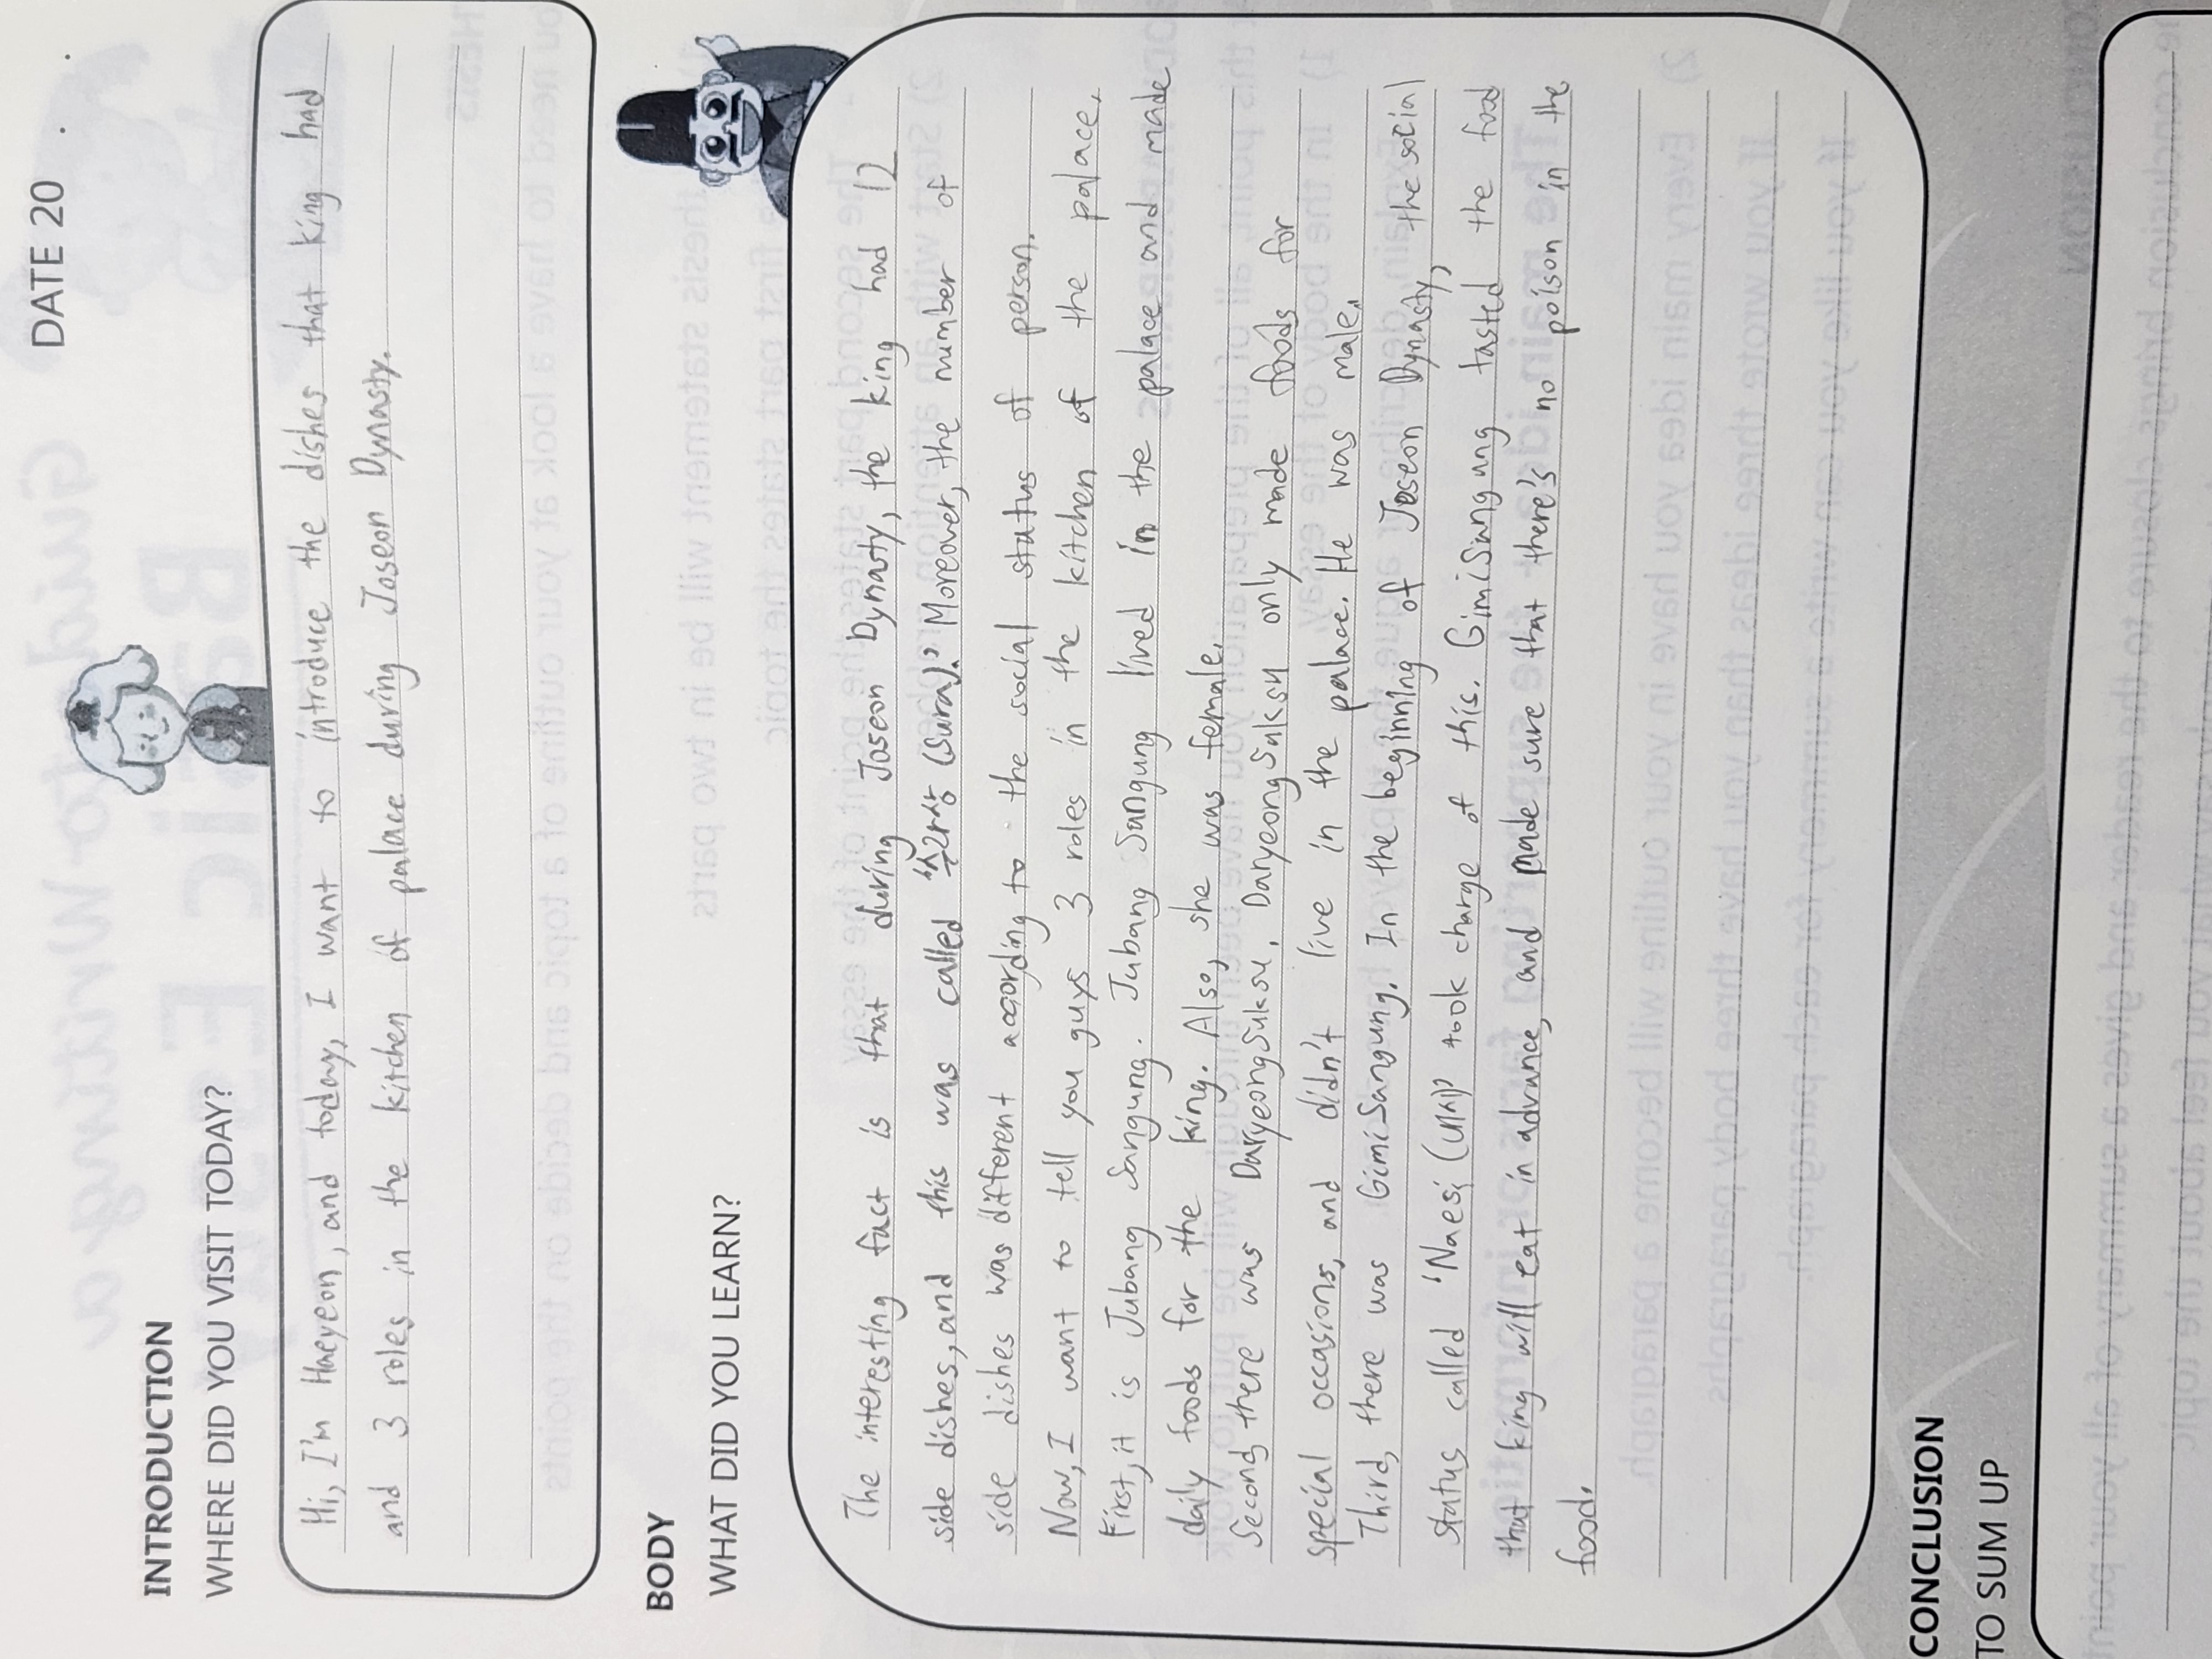 DATE 20 . .
INTRODUCTION
WHERE DID YOU VISIT TODAY?
Hi, I'm Haeyeon, and today, I want to introduce the dishes that king had
and 3 roles in the kitchen of palace during Joseon Dynasty.
BODY
WHAT DID YOU LEARN?
The interesting fact is that during Joseon Dynasty, the king had 12
side dishes, and this was called '수라상 (Sura).' Moreover, the number of
side dishes was different according to the social status of person.
Now, I want to tell you guys 3 roles in the kitchen of the palace.
First, it is Jubang Sangung. Jubang Sangung lived in the palace and made
daily foods for the king. Also, she was female.
Second, there was DaryeongSuksu. DaryeongSuksu only made foods for
special occasions, and didn't live in the palace. He was male.
Third, there was GimiSangung. In the beginning of Joseon Dynasty, the social
status called 'Naesi (내시)' took charge of this. GimiSangung tasted the food
that king will eat in advance, and made sure that there's no poison in the
food.
CONCLUSION
TO SUM UP